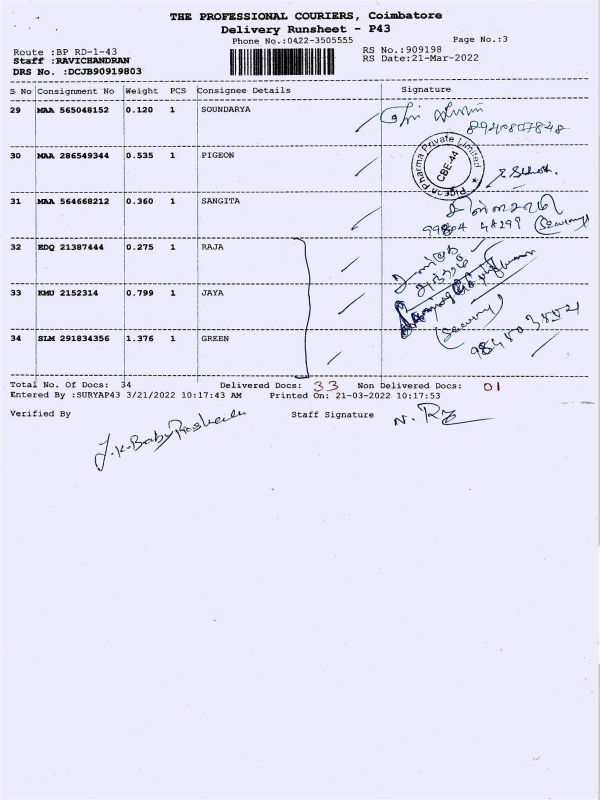 THE PROFESSIONAL COURIERS, Coimbatore
Delivery Runsheet - P43
Phone No.:0422-3505555
Page No.:3
Route :BP RD-1-43
RS No.:909198
Staff :RAVICHANDRAN
RS Date:21-Mar-2022
DRS No. :DCJB90919803
S No Consignment No Weight PCS Consignee Details Signature
29 MAA 565048152 0.120 1 SOUNDARYA
8940807848
30 MAA 286549344 0.535 1 PIGEON
Pigeon Pharma Private Limited
CBE-44
31 MAA 564668212 0.360 1 SANGITA
99804 48299
32 EDQ 21387444 0.275 1 RAJA
33 KMU 2152314 0.799 1 JAYA
34 SLM 291834356 1.376 1 GREEN
Total No. Of Docs: 34 Delivered Docs: 33 Non Delivered Docs: 01
Entered By :SURYAP43 3/21/2022 10:17:43 AM Printed On: 21-03-2022 10:17:53
Verified By Staff Signature